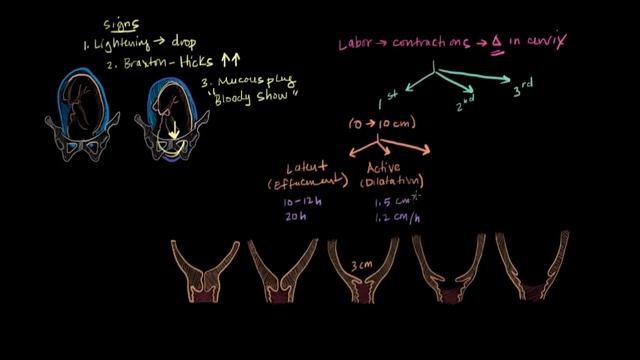 Signs
1. Lightening → drop
2. Braxton-Hicks ↑↑
3. Mucous plug
"Bloody Show"
Labor → contractions → Δ in cervix
1st
2nd
3rd
(0 → 10 cm)
Latent
(Effacement)
10-12h
20h
Active
(Dilatation)
1.5 cm
1.2 cm/h
3 cm